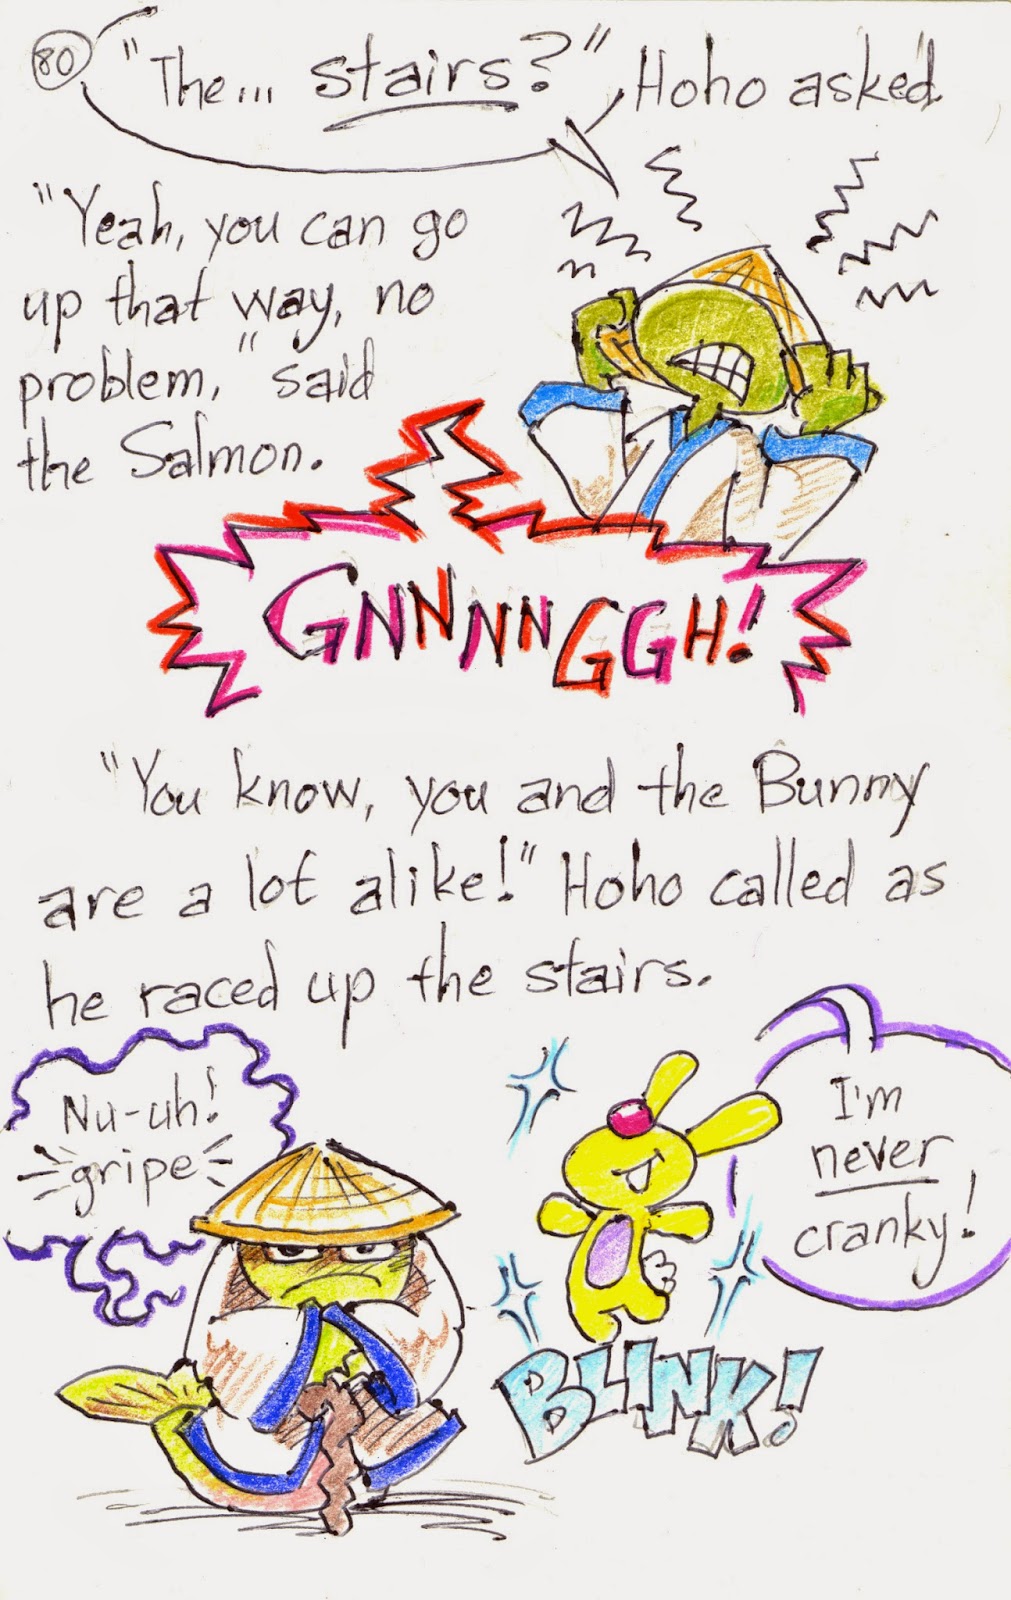 80
"The... stairs?" Hoho asked.
"Yeah, you can go
up that way, no
problem," said
the Salmon.
GNNNNNGGH!
"You know, you and the Bunny
are a lot alike!" Hoho called as
he raced up the stairs.
Nu-uh!
gripe
I'm
never
cranky!
BLINK!